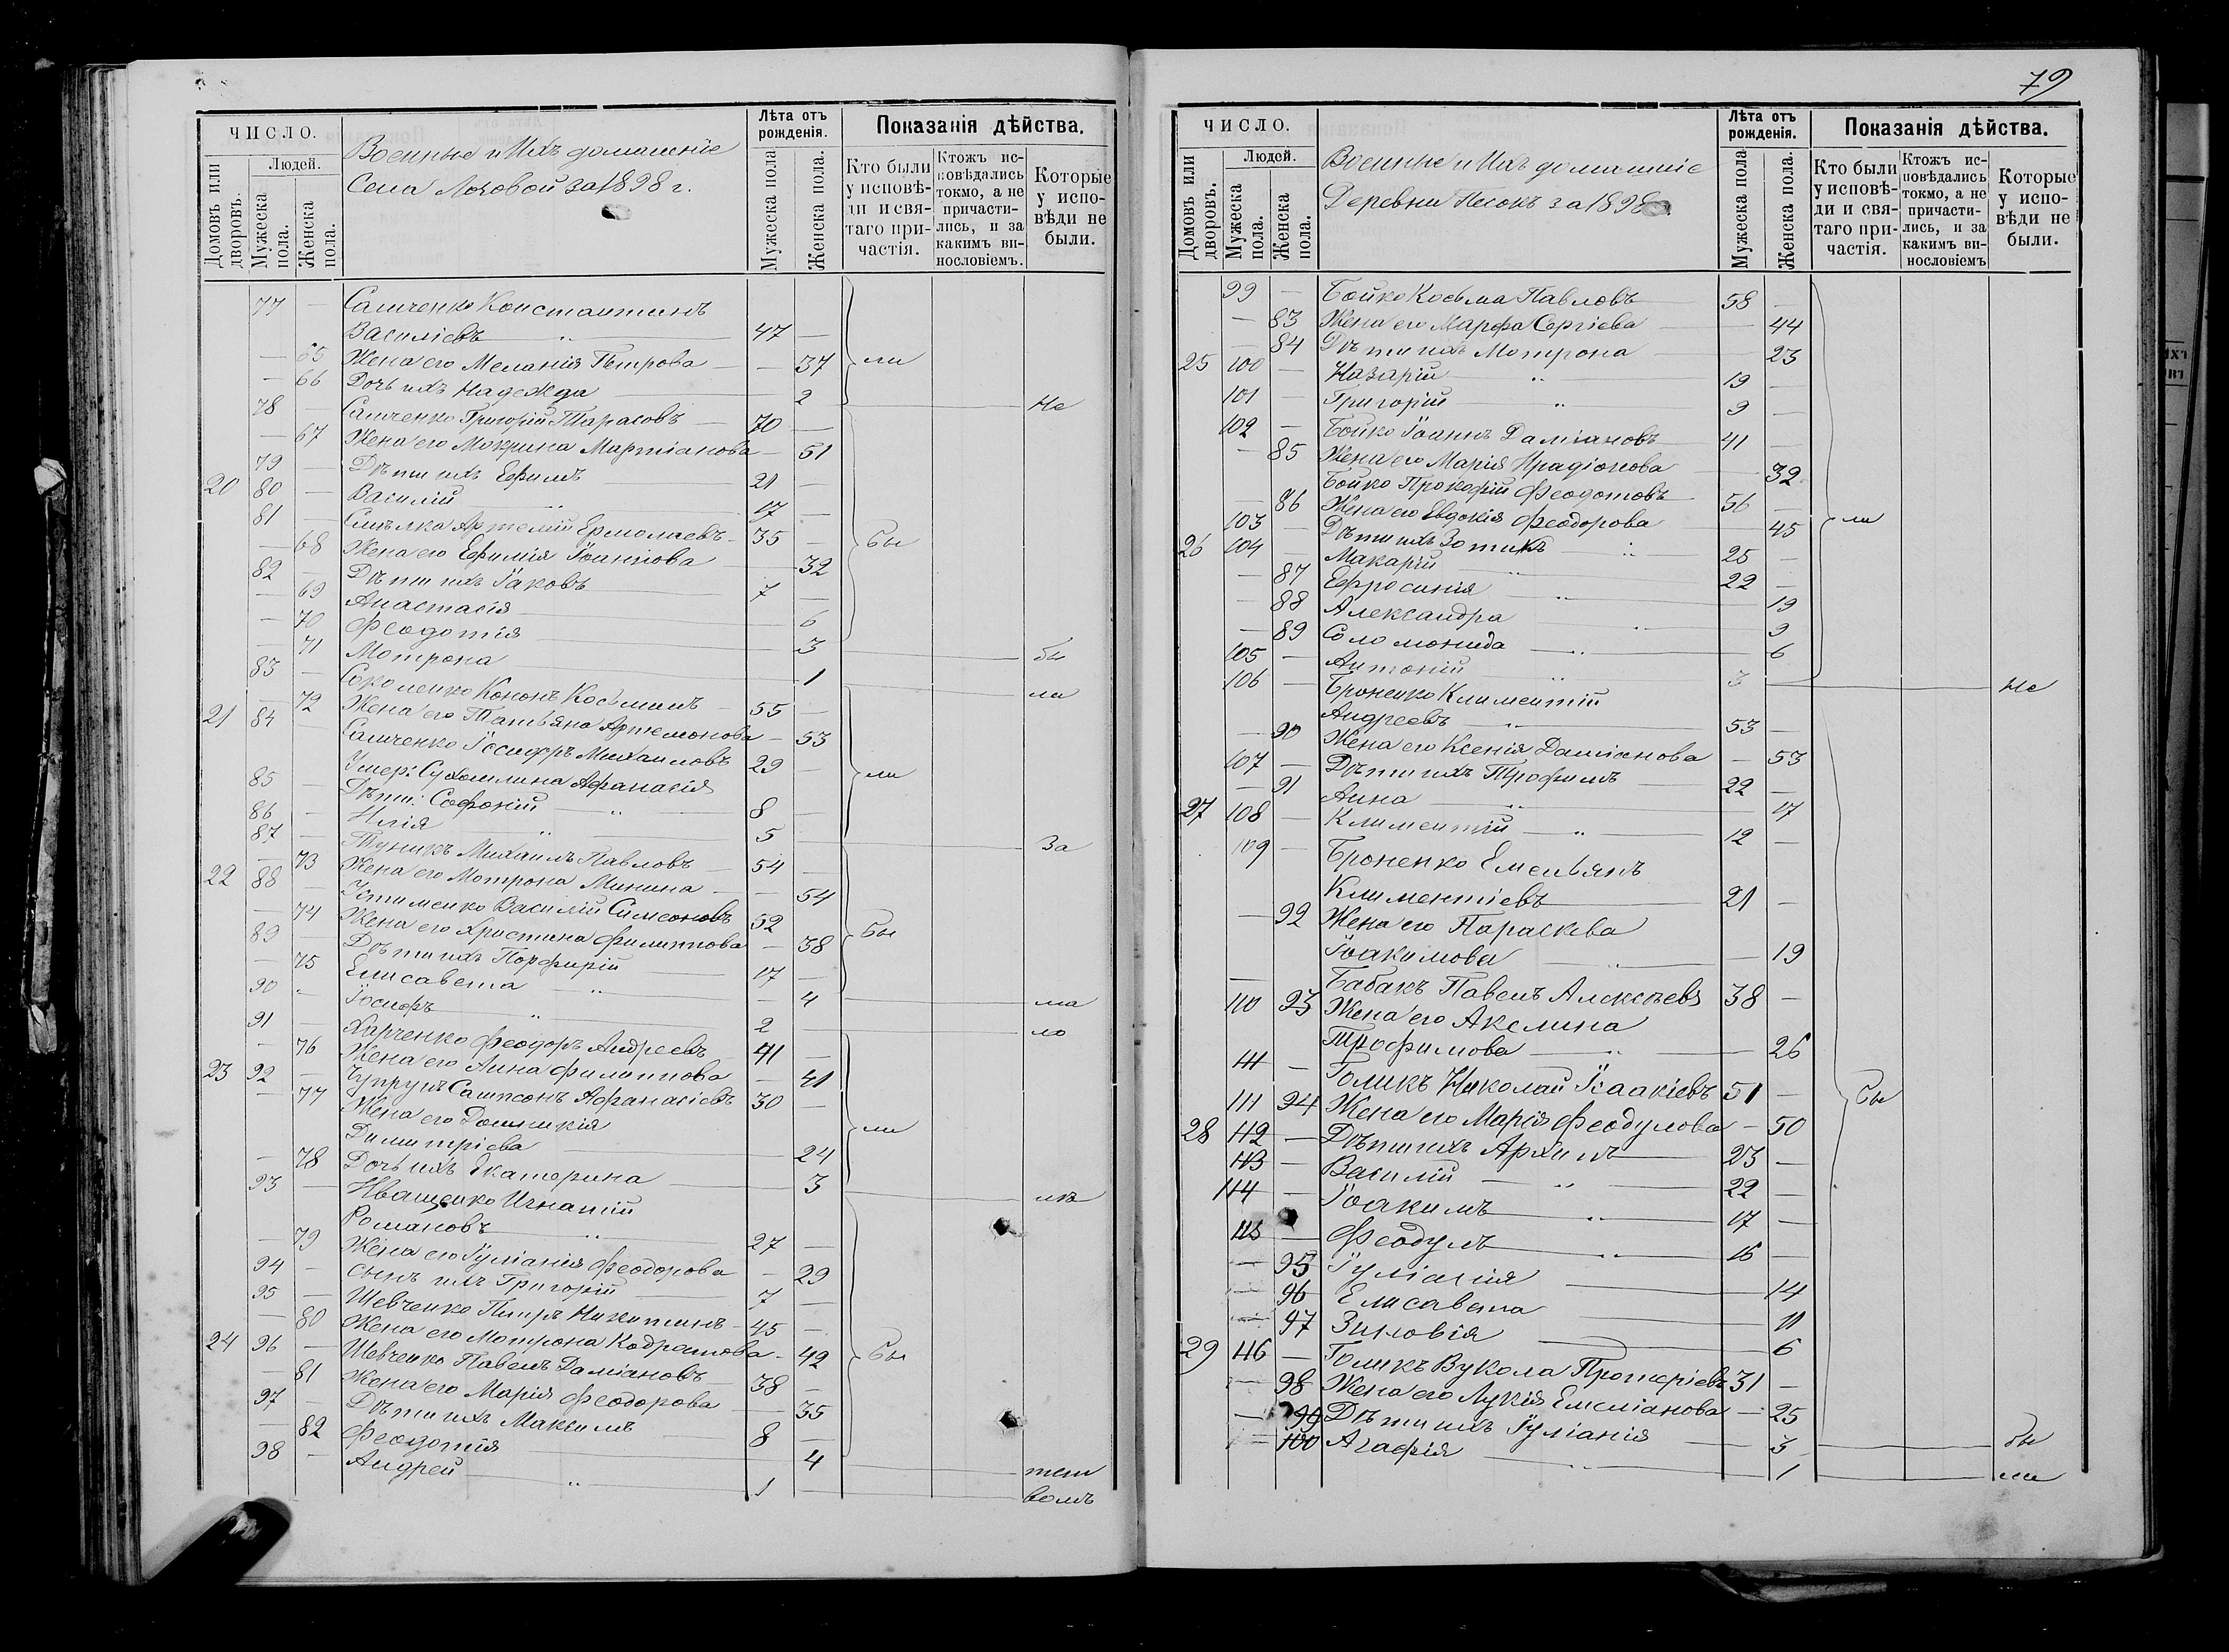 ЧИСЛО.
Домовъ или дворовъ.
Людей.
Мужеска пола.
Женска пола.
Военные и Ихъ домашніе
Села Лозовой за 1898 г.
Лѣта отъ рожденія.
Мужеска пола
Женска пола.
Показанія дѣйства.
Кто были у исповѣди и святаго причастія.
Ктожъ исповѣдались токмо, а не причастились, и за какимъ винословіемъ.
Которые у исповѣди не были.
77 — Самченко Константинъ
Василіевъ " 47 —
— 65 Жена его Меланія Петрова — 37 ли
— 66 Дочь ихъ Надежда 2 Не
78 — Самченко Григорій Тарасовъ 70 —
— 67 Жена его Мокрина Мартіанова — 51
79 — Дѣти ихъ Ефимъ 21 —
20 80 — Василій 17 —
81 — Артемій Ермолаевъ 35 — бы
— 68 Жена его Ефимія Іоаннова 32
82 — Дѣти ихъ Іаковъ 7 —
— 69 Анастасія 6
— 70 Феодотія 3 бы
— 71 Мотрона 1 ли
83 — Кононъ Косьминъ 55 —
— 72 Жена его Татьяна Артемонова — 53
21 84 — Самченко Ісидоръ Михаиловъ 29 —
Умер: Сухомлина Афанасія ли
85 — Дѣти: Софоній " 8 —
86 — Илія " 5 За
87 — Туникъ Михаилъ Павловъ 54 —
— 73 Жена его Мотрона Минина — 54
22 88 — Устименко Василій Симеоновъ 52
— 74 Жена его Христина Филиппова — 38 бы
89 — Дѣти ихъ Порфирій 17 —
— 75 Елисавета " — 4 ма
90 - Іосифъ " 2 ло
91 — Харченко Феодоръ Андреевъ 41 —
— 76 Жена его Анна Филиппова — 41
23 92 — Чупрунъ Сампсонъ Афанасіевъ 30 —
— 77 Жена его Домникія ли
Димитріева 24
— 78 Дочь ихъ Екатерина 3
93 — Иващенко Игнатій
Романовъ " 27 —
— 79 Жена его Іуліанія Феодорова — 29
94 — Сынъ ихъ Григорій 7 —
95 — Шевченко Петръ Никитинъ 45 —
— 80 Жена его Мотрона Кодратова 42
24 96 — Шевченко Павелъ Даміановъ 38 — бы
— 81 Жена его Марія Феодорова — 35
97 — Дѣти ихъ Максимъ 8 —
— 82 Феодотія 4
98 — Андрей " 1
79
ЧИСЛО.
Домовъ или дворовъ.
Людей.
Мужеска пола.
Женска пола.
Военные и Ихъ домашніе
Деревни Песокъ за 1898
Лѣта отъ рожденія.
Мужеска пола
Женска пола.
Показанія дѣйства.
Кто были у исповѣди и святаго причастія.
Ктожъ исповѣдались токмо, а не причастились, и за какимъ винословіемъ
Которые у исповѣди не были.
99 — Бойко Косьма Павловъ 58 —
— 83 Жена его Марфа Сергіева — 44
84 Дѣти ихъ Мотрона 23
25 100 — Назарій " 19 —
101 — Григорій " 9 —
102 — Бойко Іоаннъ Даміановъ 41 —
— 85 Жена его Марія Ирадіонова — 32
Бойко Прокофій Феодотовъ 56 —
— 86 Жена его Евдокія Феодорова 45 ли
103 — Дѣти ихъ Зотикъ " 25 —
26 104 — Макарій " 22 —
— 87 Ефросинія " 19
— 88 Александра " 9
— 89 Соломонида " 6
105 — Антоній " 3 Не
106 — Броненко Климентій
Андреевъ " 53 —
— 90 Жена его Ксенія Даміанова — 53
107 — Дѣти ихъ Трофимъ 22 —
— 91 Анна " 17
27 108 — Климентій " 12 —
109 — Броненко Емельянъ
Климентіевъ 21 —
— 92 Жена его Параскева
Іоакимова " — 19
Бабакъ Павелъ Алексѣевъ 38 —
110 93 Жена его Акелина
Трофимова " 26
— Голикъ Николай Ісаакіевъ 51 —
111 94 Жена его Марія Феодулова — 50 бы
28 112 — Дѣти ихъ Архипъ 23 —
113 — Василій " 22 —
114 — Іоакимъ " 17 —
115 — Феодулъ " 15 —
— 95 Іуліанія 14
— 96 Елисавета 11
— 97 Зиновія 6
29 116 — Голикъ Вукола Протеріевъ 31 —
— 98 Жена его Лукія Емеліанова — 25
— 99 Дѣти ихъ Іуліанія 3 бы
— 100 Агафія " 1 ли